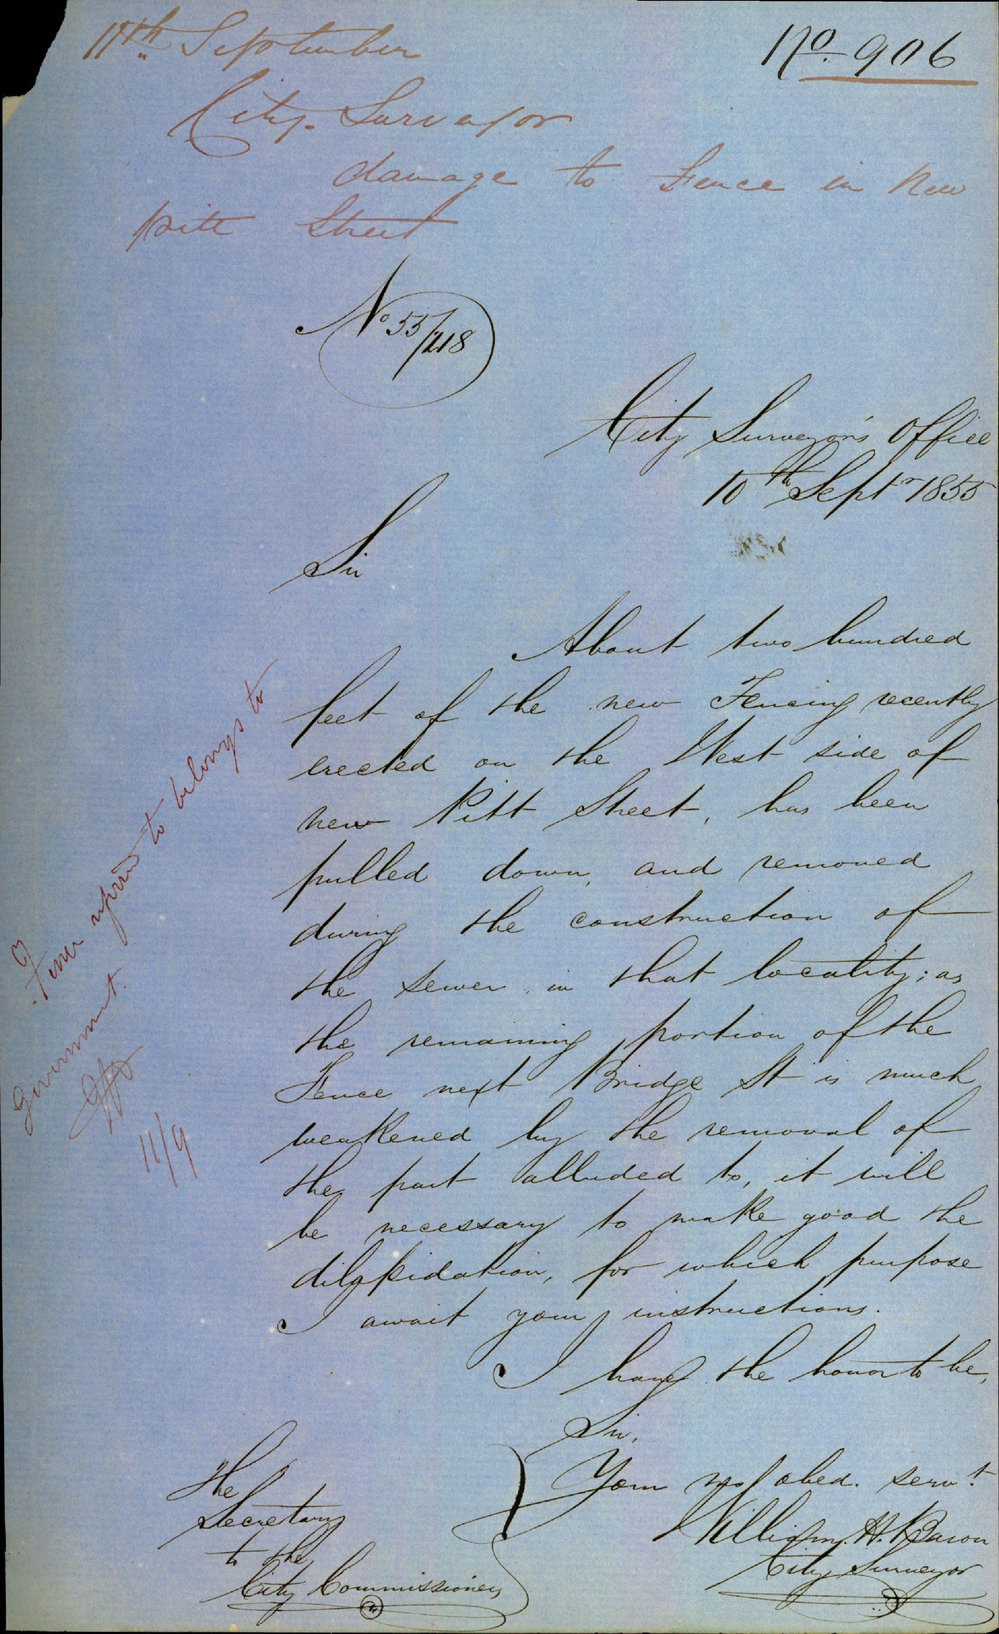 11th September
No. 906
City Surveyor
damage to Fence in New
Pitt Street
No 55/218
City Surveyor's Office
10th Septr 1855
Sir
About two hundred
feet of the new Fencing recently
erected on the West side of
new Pitt Street, has been
pulled down, and removed
during the construction of
the sewer in that locality; as
the remaining portion of the
Fence next Bridge St is much
weakened by the removal of
the part alluded to, it will
be necessary to make good the
dilapidation, for which purpose
I await your instructions.
I have the honor to be,
Sir,
Your obed. servt.
William H.
City Surveyor
The
Secretary
to the
City Commissioners
Fence to belongs to
Government.
11/9